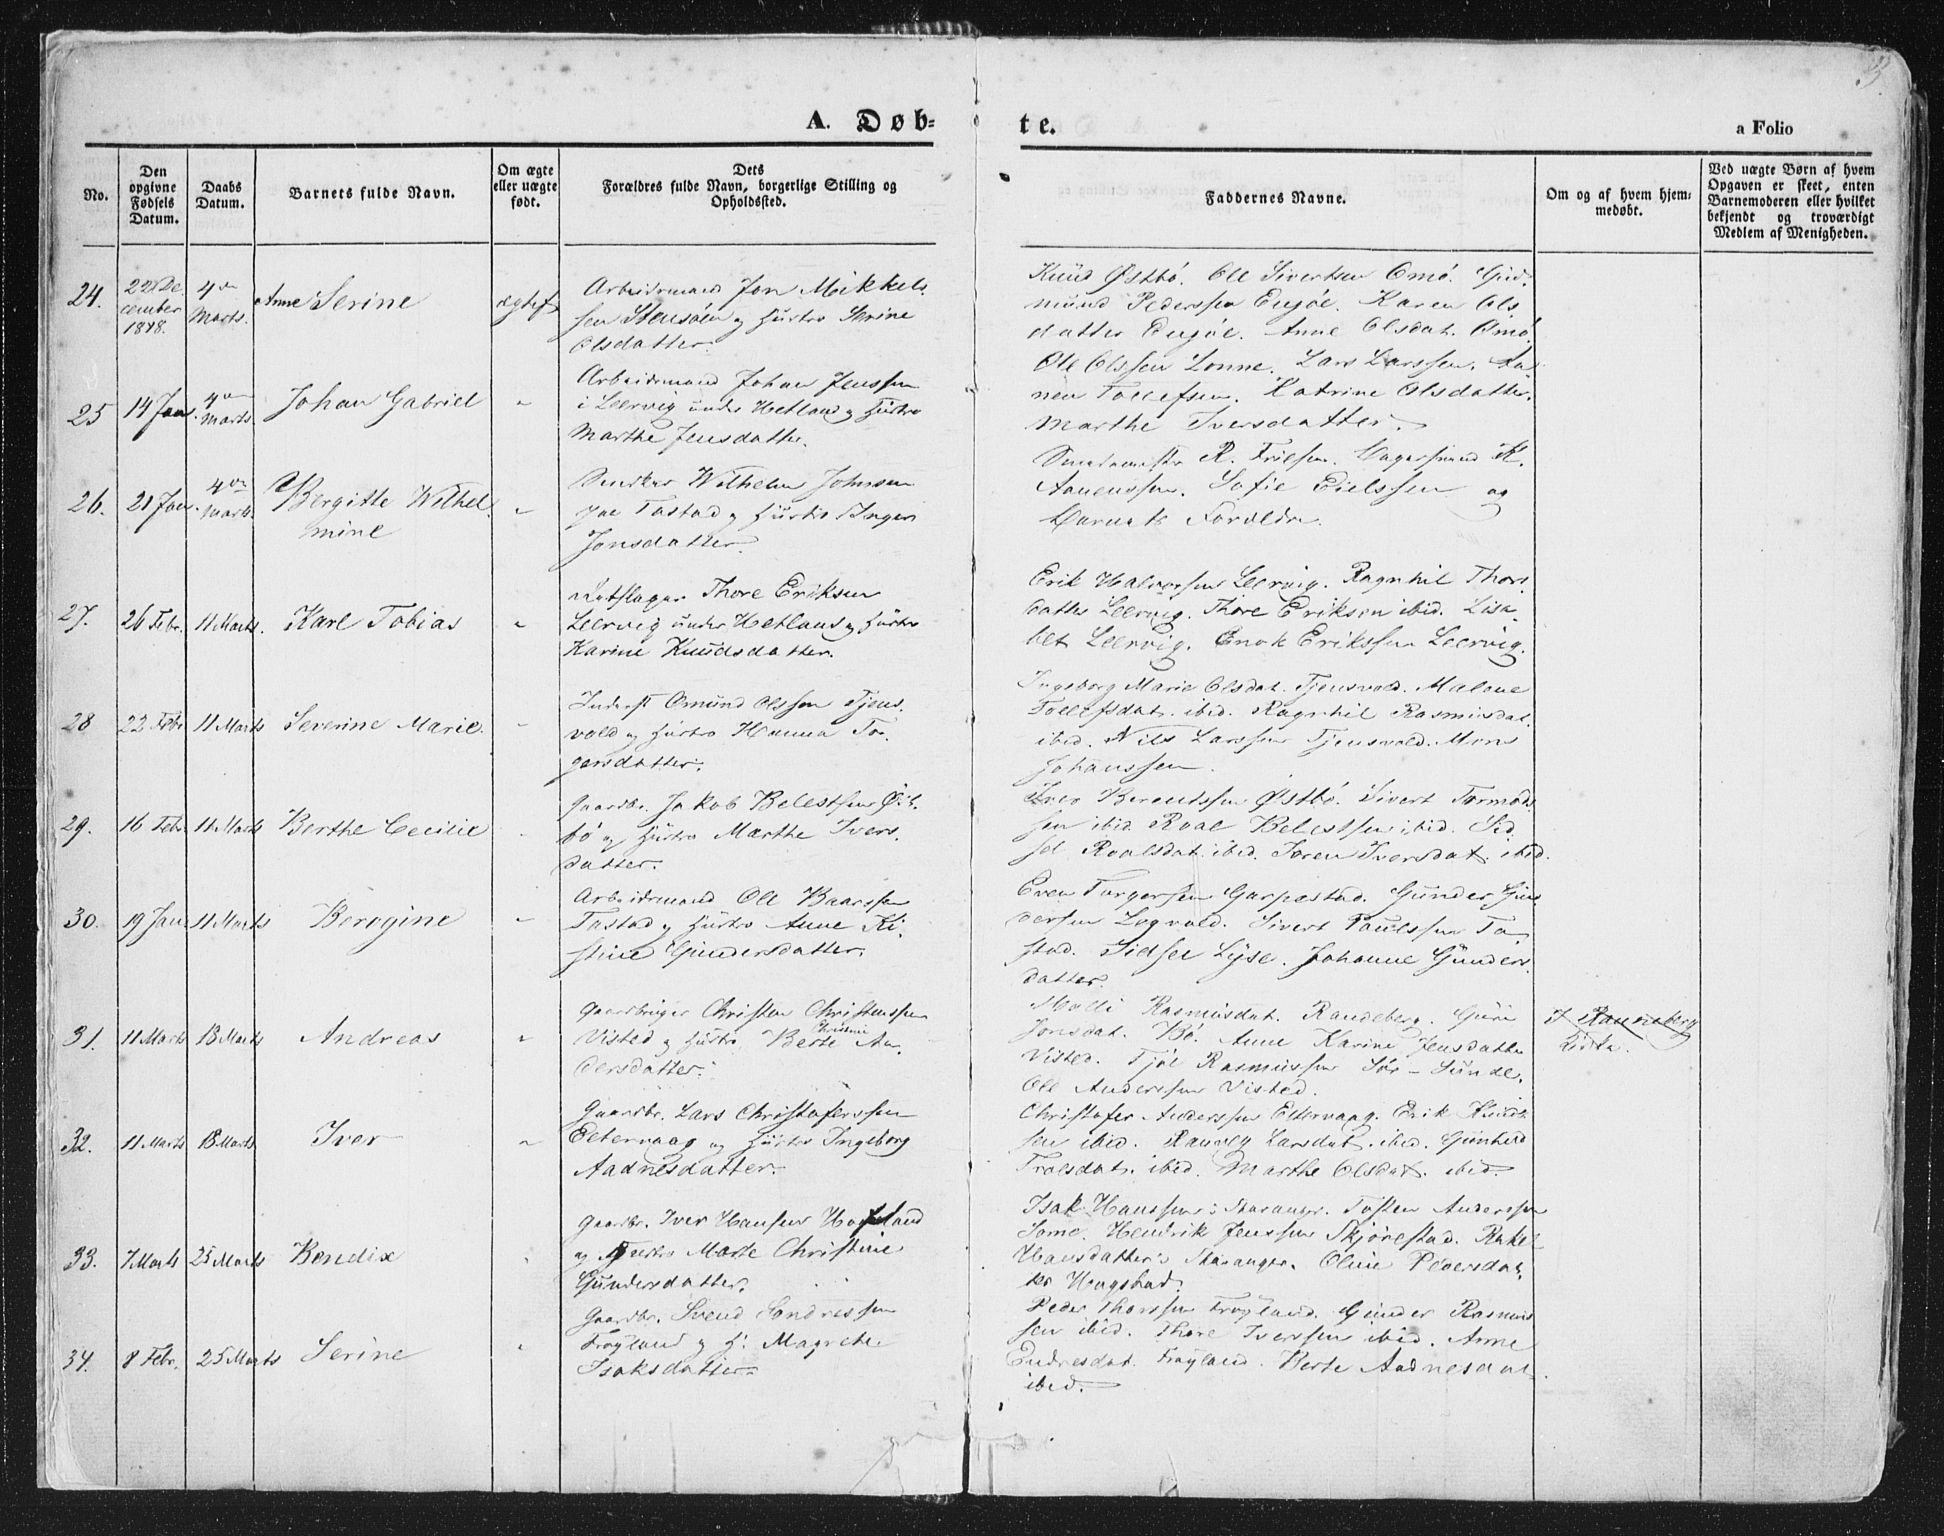 A. Døb-
te.
a Folio
No.
Den opgivne Fødsels Datum.
Daabs Datum.
Barnets fulde Navn.
Om ægte eller uægte født.
Dets Forældres fulde Navn, borgerlige Stilling og Opholdssted.
Faddernes Navne.
Om og af hvem hjemmedøbt.
Ved uægte Børn af hvem Opgaven er skeet, enten Barnemoderen eller hvilket bekjendt og troværdigt Medlem af Menigheden.
24.
cember
Marts.
Anne Serine
Arbeidsmand Jon Mikkel-
sen og Hustro Serine
Olsdatter.
Knud Østbö. Ole Sivertsen Omö. Gud-
mund Pederssen Engöe. Karen Ols-
datter Engöe. Anne Olsdat. Omö
25
14 Jan.
4de Marts.
Johan Gabriel
"
Arbeidsmand Johan Jenssen
i Leervig under Hetland og Hustro
Marthe Jensdatter.
Ole Olssen Lonne. Lars Larssen.
Tollefsen. Katrine Olsdatter.
Marthe Iversdatter.
26.
21 Jan.
4de Marts.
Bergitte Wilhel-
mine
"
Snedker Wilhelm Johnsen
paa Tastad og Hustro Inger
Jonsdatter.
Sofie Eielssen og
Barnets Forældre.
27.
26 Febr.
11 Marts.
Karl Tobias
"
Thore Eriksen
Leervig under Hetland og Hustro
Karine Knudsdatter.
Erik Halvorsen Leervig. Ragnhil Thors-
datter Leervig. Thore Eriksen ibid. Lisa-
bet Leervig. Enok Erikssen Leervig.
28
22 Febr.
11 Marts
Severine Marie.
"
Inderst Omund Olssen Tjens-
vold og Hustro Hanna Tor-
gersdatter.
Ingeborg Marie Olsdat. Tjensvold. Malene
Tollefsdat. ibid. Ragnhil Rasmusdat.
ibid. Nils Larssen Tjensvold. Mons
Johanssen.
29.
16 Febr.
11 Marts
Berthe Cecilie
Gaardbr. Jakob Belestsen Øst-
bö og Hustro Marthe Ivers-
datter.
Iver Berentssen Østbö. Sivert Tormods-
sen ibid. Roal Belestsen ibid. Sid-
sel Roalsdat. ibid. Soren Iversdat. ibid.
30.
19 Jan
11 Marts
Berogine
"
Arbeidsmand Ole Baarssen
Tastad og Hustro Anne Ki-
stine Gundersdatter.
Even Torgersen Gaspestad. Gunder Gun-
dersen Sivert Paulssen Ta-
stad. Sidsel Lyse. Johanne Gunders-
datter.
31.
11 Marts
18 Marts
Andreas
"
Gaardbruger Christen Christenssen
Visted og Hustro Berte Christine An-
dersdatter.
Malli Rasmusdat. Randeberg. Guri
Jonsdat. Bö. Anne Karine Jensdatter
Visted. Tjöl Rasmussen Sör-Sunde.
Ole Anderssen Visted.
32.
11 Marts
18 Marts
Iver
"
Gaardbr. Lars Christoferssen
Eetervaag og Hustro Ingeborg
Aadnesdatter.
Christofer Anderssen Etervaag. Erik Knud-
sen ibid. Larsdat. ibid. Gunhild
Troelsdat. ibid. Marthe Olsdat. ibid.
33.
7 Marts
25 Marts
Bendix
Gaardbr. Iver Hansen
og Hustro Marte Christine
Gundersdatter.
Isak Hanssen Stavanger. Tosten Anderssen
Some. Hendrik Jenssen Skjörestad. Rakel
Hansdatter Stavanger. Oline Pedersdat-
ter Hogstad.
34.
8 Febr.
25 Marts
Serine
Gaardbr. Svend Sondressen
Fröyland og H. Magrethe
Isaksdatter.
Peder Thorssen Fröyland. Gunder Rasmus-
sen ibid. Thore Iverssen ibid. Anne
Endresdat. Fröyland. Berte Aadnesdat.
ibid.